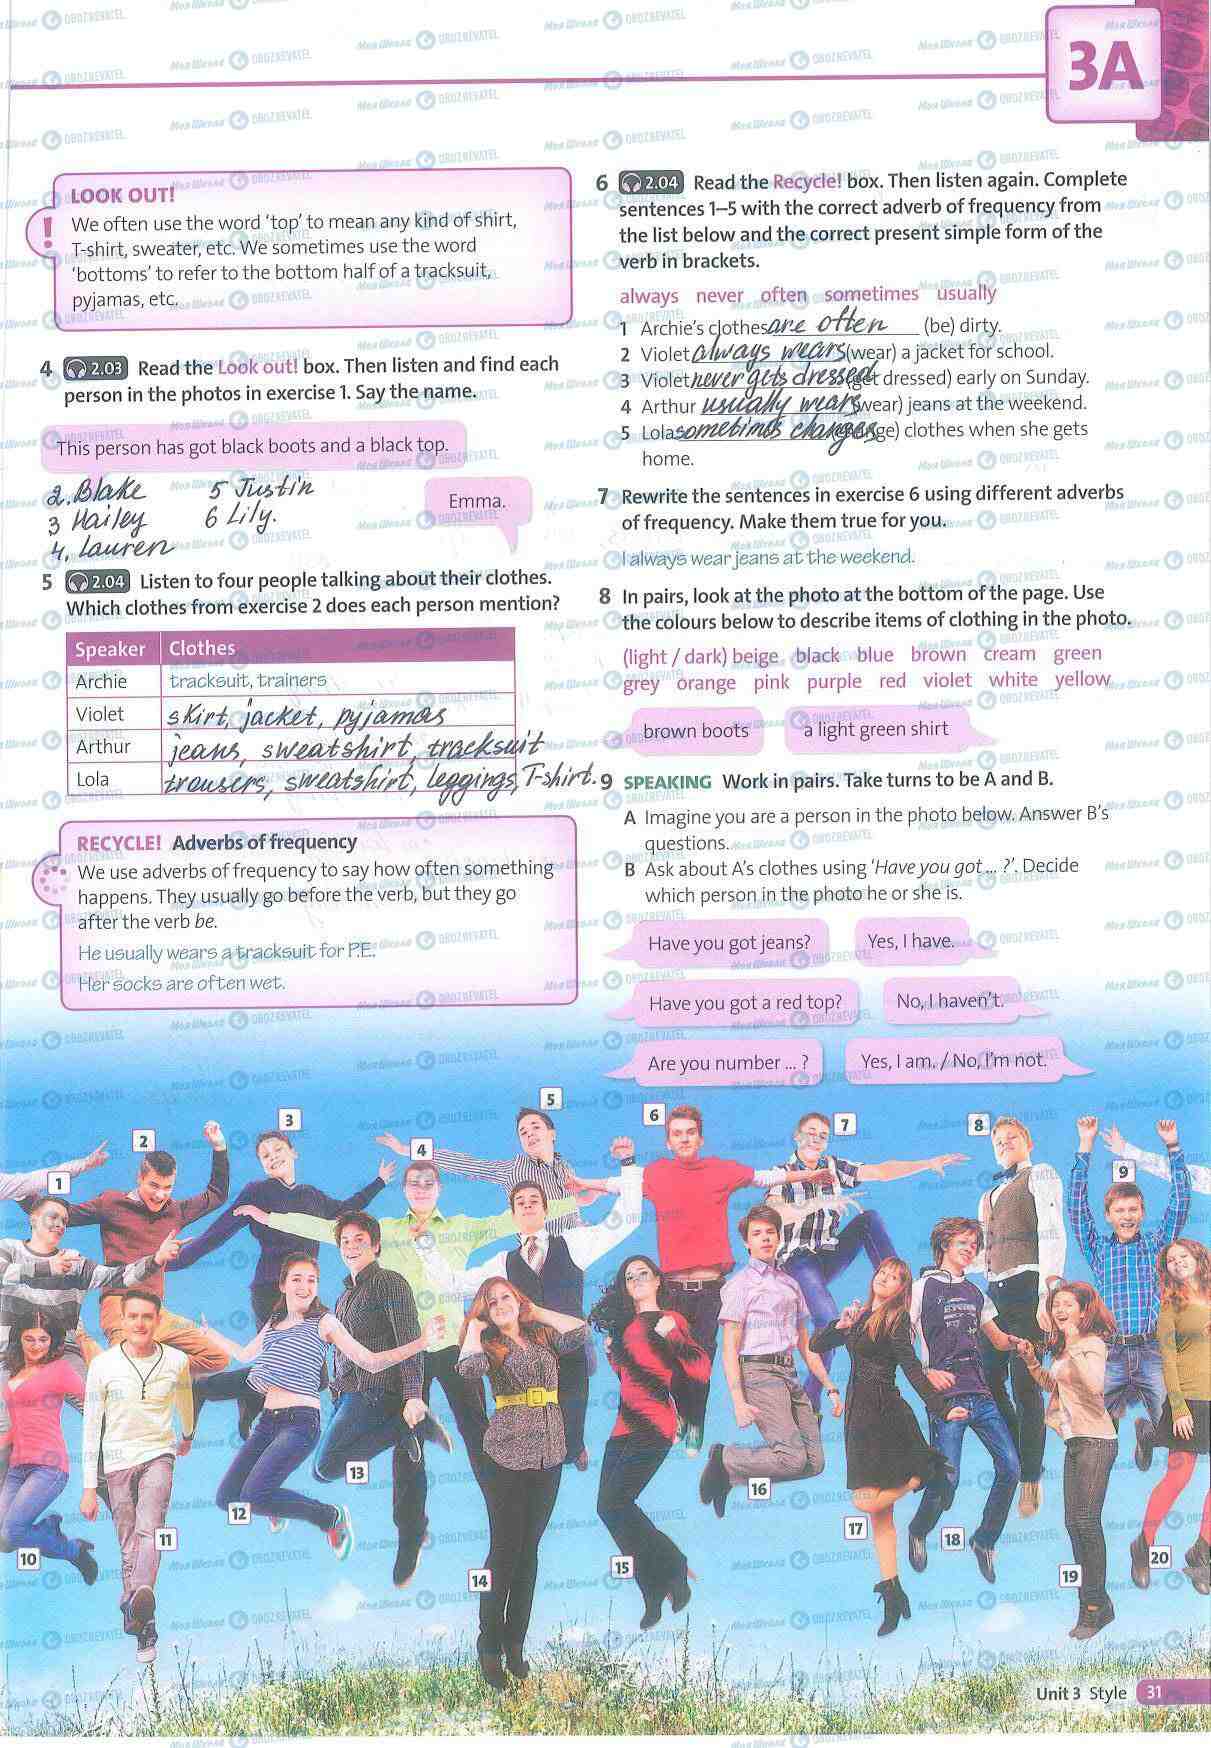 3A
LOOK OUT!
!
We often use the word ‘top’ to mean any kind of shirt,
T-shirt, sweater, etc. We sometimes use the word
‘bottoms’ to refer to the bottom half of a tracksuit,
pyjamas, etc.
4 2.03 Read the Look out! box. Then listen and find each
person in the photos in exercise 1. Say the name.
This person has got black boots and a black top.
Emma.
2. Blake 5 Justin
3 Hailey 6 Lily.
4. Lauren
5 2.04 Listen to four people talking about their clothes.
Which clothes from exercise 2 does each person mention?
Speaker Clothes
Archie tracksuit, trainers
Violet skirt, jacket, pyjamas
Arthur jeans, sweatshirt, tracksuit
Lola trousers, sweatshirt, leggings, T-shirt.
RECYCLE! Adverbs of frequency
We use adverbs of frequency to say how often something
happens. They usually go before the verb, but they go
after the verb be.
He usually wears a tracksuit for P.E.
Her socks are often wet.
6 2.04 Read the Recycle! box. Then listen again. Complete
sentences 1–5 with the correct adverb of frequency from
the list below and the correct present simple form of the
verb in brackets.
always never often sometimes usually
1 Archie’s clothes are often (be) dirty.
2 Violet always wears (wear) a jacket for school.
3 Violet never gets dressed (get dressed) early on Sunday.
4 Arthur usually wears (wear) jeans at the weekend.
5 Lola sometimes changes (change) clothes when she gets
home.
7 Rewrite the sentences in exercise 6 using different adverbs
of frequency. Make them true for you.
I always wear jeans at the weekend.
8 In pairs, look at the photo at the bottom of the page. Use
the colours below to describe items of clothing in the photo.
(light / dark) beige black blue brown cream green
grey orange pink purple red violet white yellow
brown boots a light green shirt
9 SPEAKING Work in pairs. Take turns to be A and B.
A Imagine you are a person in the photo below. Answer B’s
questions.
B Ask about A’s clothes using ‘Have you got ... ?’. Decide
which person in the photo he or she is.
Have you got jeans? Yes, I have.
Have you got a red top? No, I haven’t.
Are you number ... ? Yes, I am. / No, I’m not.
1
2
3
4
5
6
7
8
9
10
11
12
13
14
15
16
17
18
19
20
Unit 3 Style 31
Моя Школа OBOZREVATEL